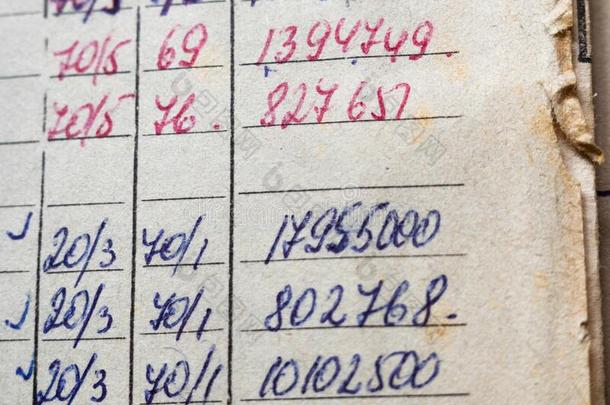 70/5 69 1394749.
70/5 76. 827651
20/3 70/1 17955000
20/3 70/1 802768.
20/3 70/1 10102500